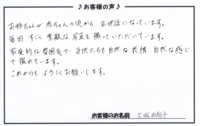 ♪お客様の声♪
お姉ちゃんが赤ちゃんの頃から お世話になっています。
毎回、すごく素敵な写真を撮っていただいています。
家庭的な雰囲気で 子供たちも自然な表情、自然な感じ
で撮れています。
これからも よろしくお願いします。
お客様のお名前